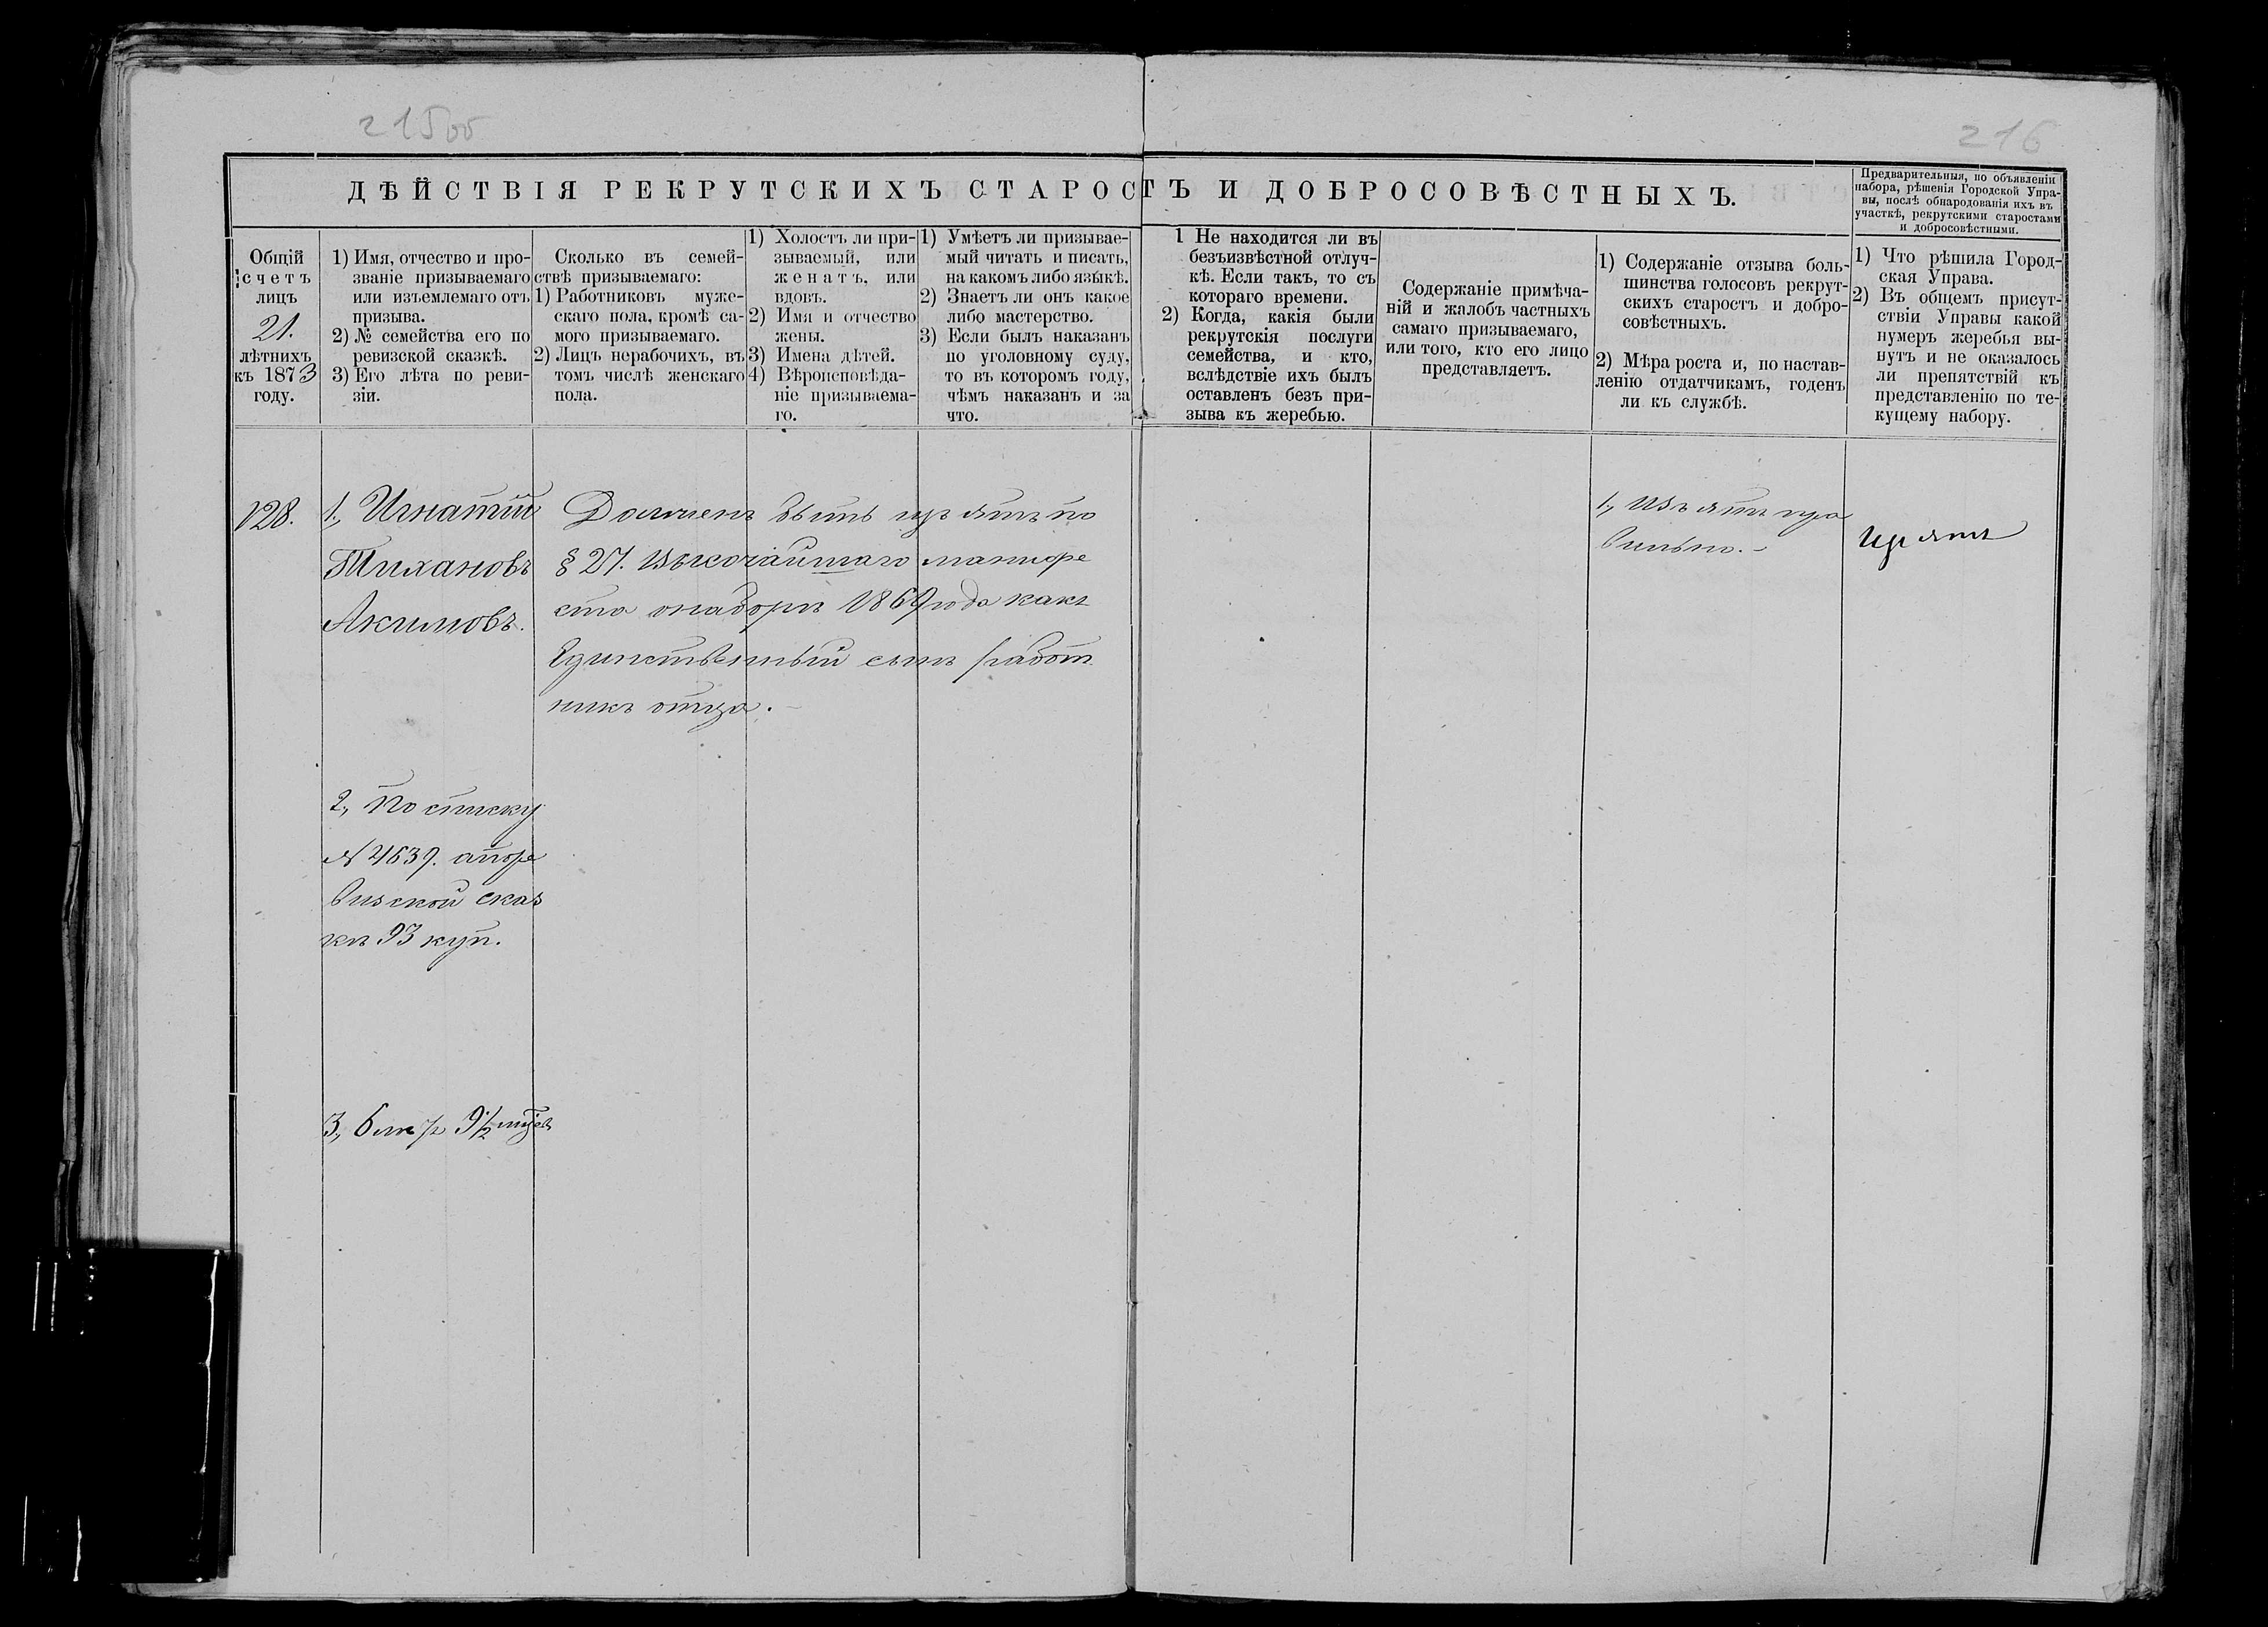 215об
216
ДѢЙСТВІЯ РЕКРУТСКИХЪ СТАРОСТЪ И ДОБРОСОВѢСТНЫХЪ.
Предварительныя, по объявленіи
набора, рѣшенія Городской Упра-
вы, послѣ обнародованія ихъ въ
участкѣ, рекрутскими старостами
и добросовѣстными.
Общій
счетъ
лицъ
21.
лѣтнихъ
къ 1873
году.
1) Имя, отчество и про-
званіе призываемаго
или изъемлемаго отъ
призыва.
2) № семейства его по
ревизской сказкѣ.
3) Его лѣта по реви-
зіи.
Сколько въ семей-
ствѣ призываемаго:
1) Работниковъ муже-
скаго пола, кромѣ са-
мого призываемаго.
2) Лицъ нерабочихъ, въ
томъ числѣ женскаго
пола.
1) Холостъ ли при-
зываемый, или
женатъ, или
вдовъ.
2) Имя и отчество
жены.
3) Имена дѣтей.
4) Вѣроисповѣда-
ніе призываема-
го.
1) Умѣетъ ли призывае-
мый читать и писать,
на какомъ либо языкѣ.
2) Знаетъ ли онъ какое
либо мастерство.
3) Если былъ наказанъ
по уголовному суду,
то въ которомъ году,
чѣмъ наказанъ и за
что.
1 Не находится ли въ
безъизвѣстной отлуч-
кѣ. Если такъ, то съ
котораго времени.
2) Когда, какія были
рекрутскія послуги
семейства, и кто,
вслѣдствіе ихъ былъ
оставленъ безъ при-
зыва къ жеребью.
Содержаніе примѣча-
ній и жалобъ частныхъ
самаго призываемаго,
или того, кто его лицо
представляетъ.
1) Содержаніе отзыва боль-
шинства голосовъ рекрут-
скихъ старостъ и добро-
совѣстныхъ.
2) Мѣра роста и, по настав-
ленію отдатчикамъ, годенъ
ли къ службѣ.
1) Что рѣшила Город-
ская Управа.
2) Въ общемъ присут-
ствіи Управы какой
нумеръ жеребья вы-
нутъ и не оказалось
ли препятствій къ
представленію по те-
кущему набору.
128.
1., Игнатій
Тихановъ
Акимовъ.
2., По списку
№ 4639. а по ре
визской сказ
кѣ 93 куп.
3., 6 лѣтъ 9½ мцев
Долженъ быть изъятъ по
§ 27. Высочайшаго манифе
ста о наборѣ 1869 года какъ
Единственный сынъ работ
никъ отца.
1., Изъятъ пра
вильно.
Изъятъ